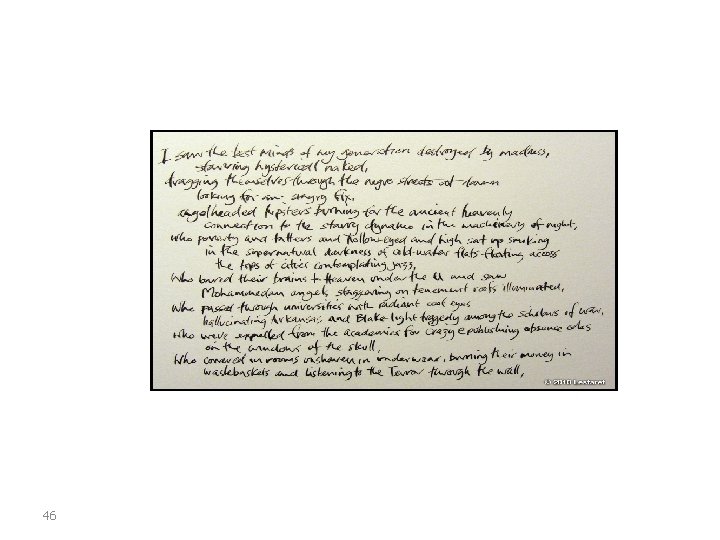 I saw the best minds of my generation destroyed by madness,
starving hysterical naked,
dragging themselves through the negro streets at dawn
looking for an angry fix,
angelheaded hipsters burning for the ancient heavenly
connection to the starry dynamo in the machinery of night,
who poverty and tatters and hollow-eyed and high sat up smoking
in the supernatural darkness of cold-water flats floating across
the tops of cities contemplating jazz,
who bared their brains to Heaven under the El and saw
Mohammedan angels staggering on tenement roofs illuminated,
who passed through universities with radiant cool eyes
hallucinating Arkansas and Blake-light tragedy among the scholars of war,
who were expelled from the academies for crazy & publishing obscene odes
on the windows of the skull,
who cowered in rooms unshaven in underwear, burning their money in
wastebaskets and listening to the Terror through the wall,
46